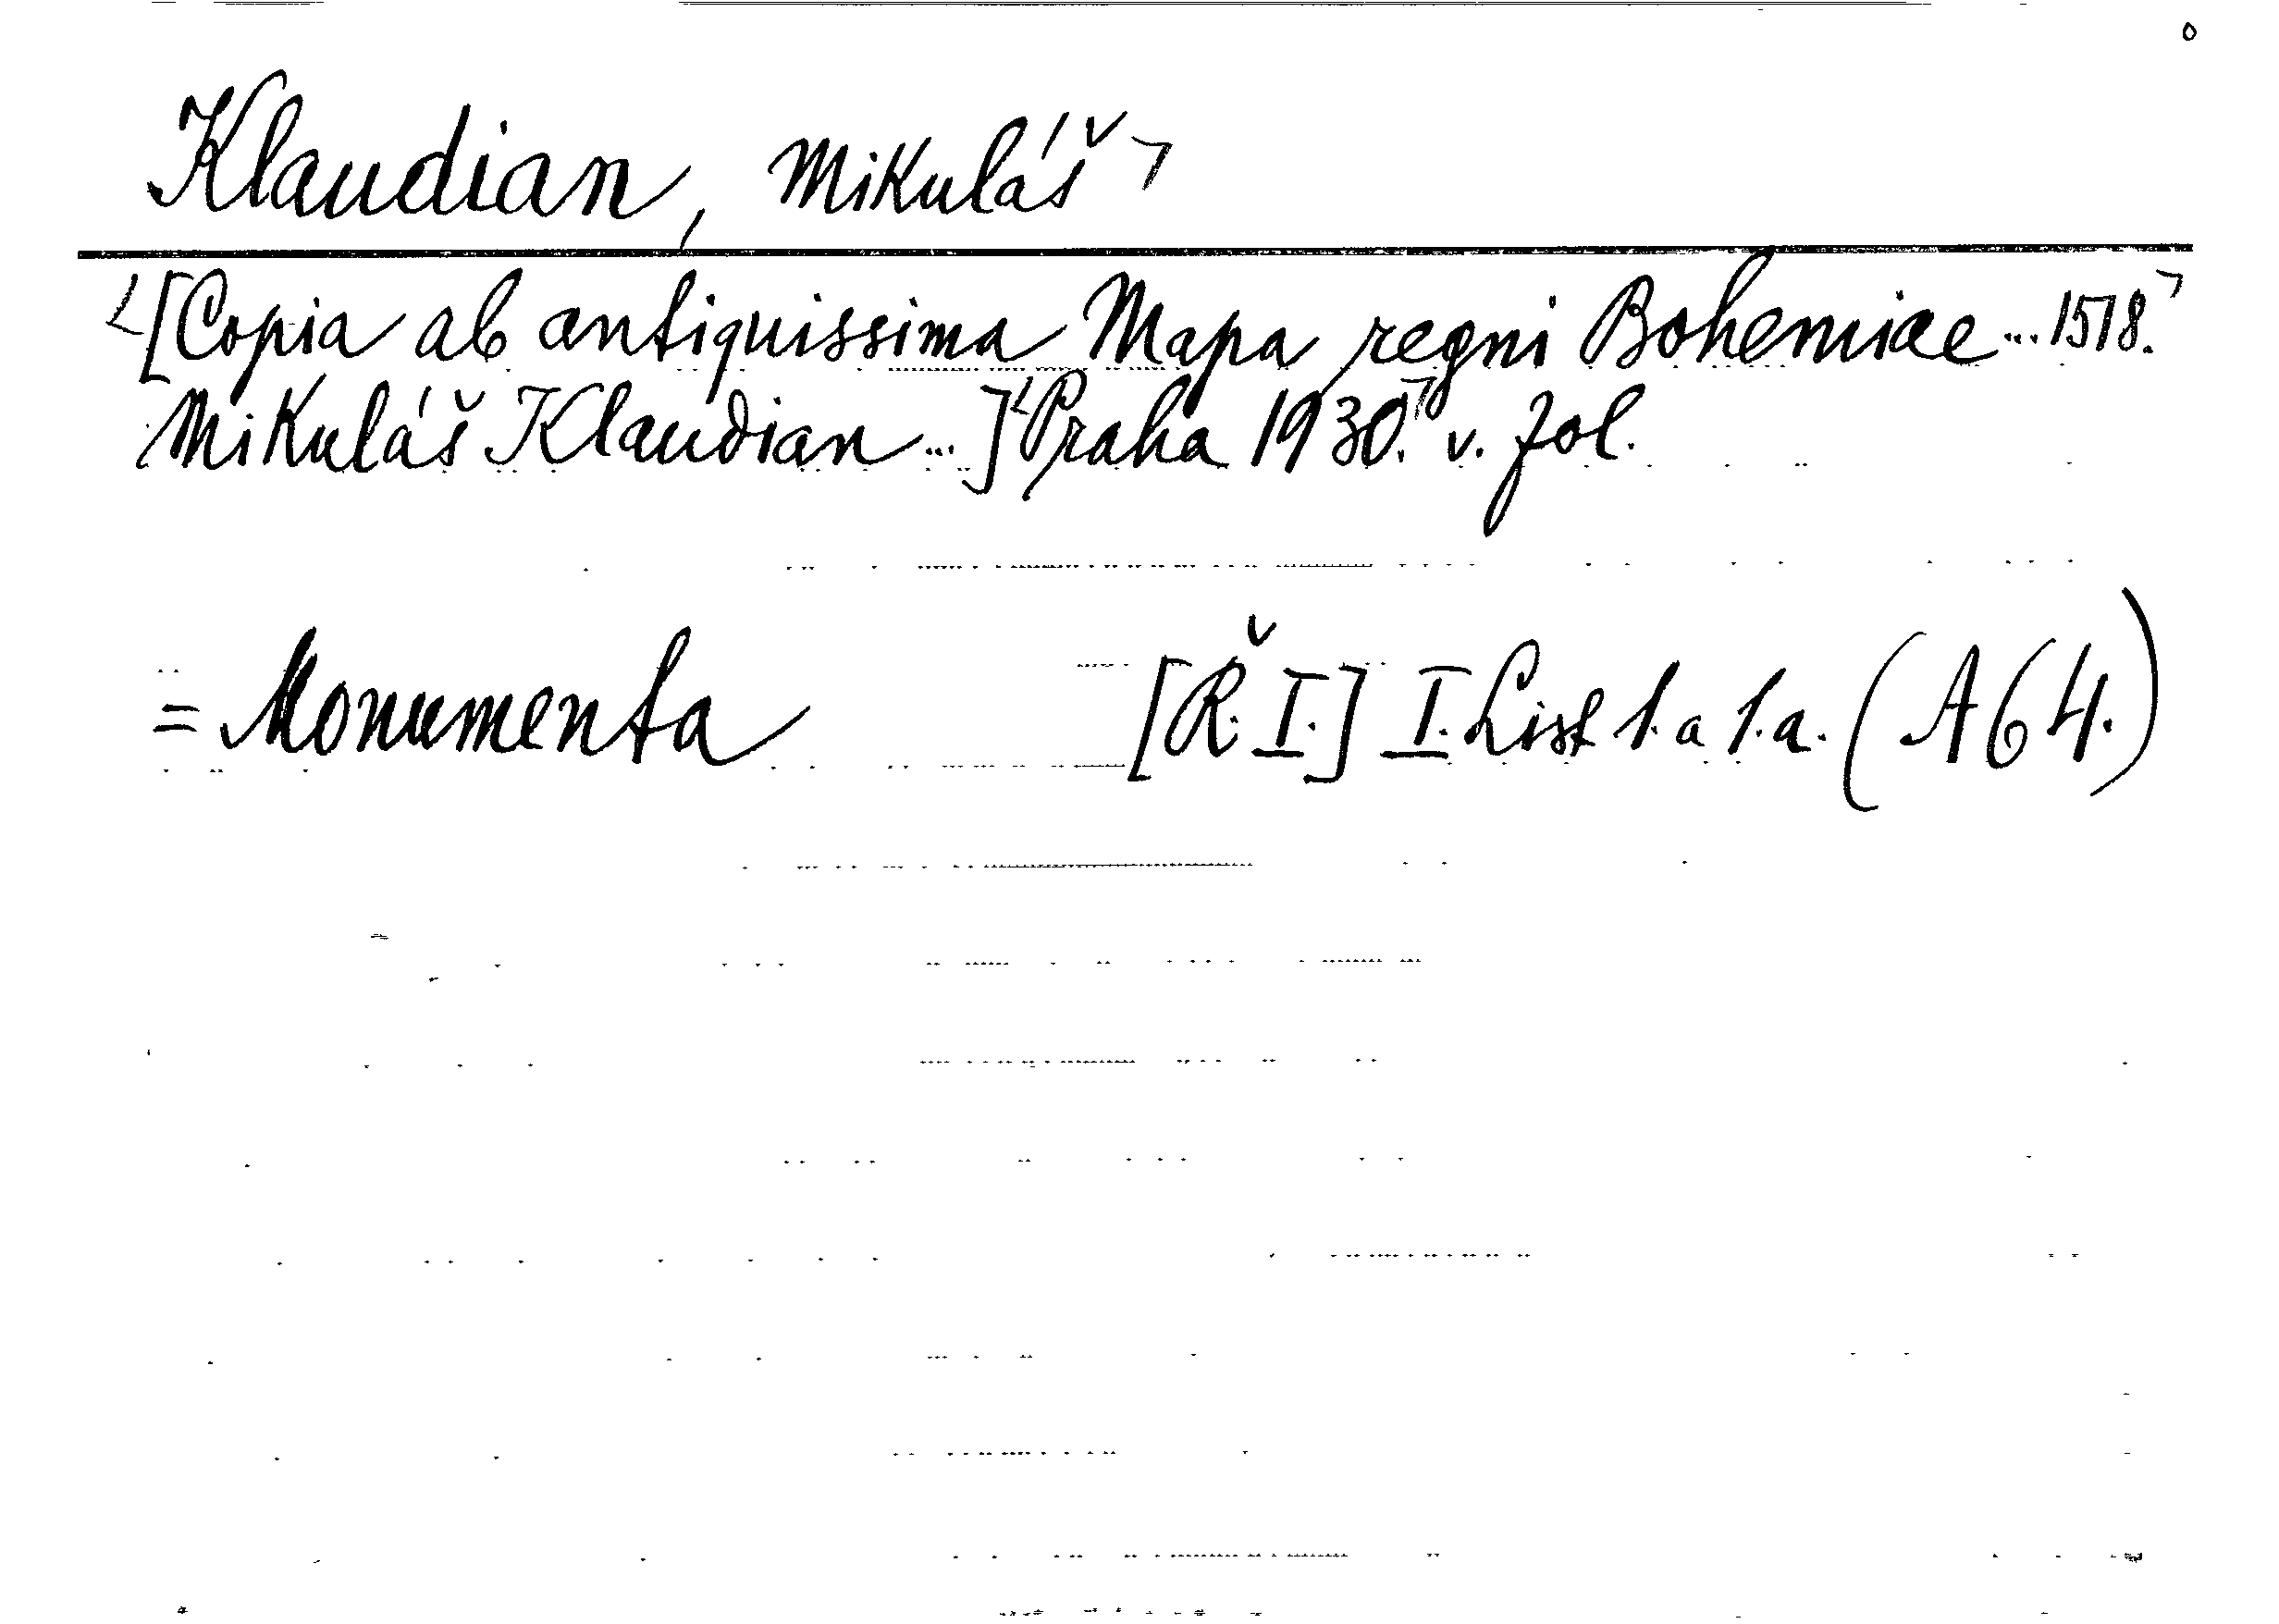 Klaudian, Mikuláš
[Copia ab antiquissima Mapa regni Bohemiae ... 1518.
Mikuláš Klaudian ...] Praha 1930. v. fol.
= Monumenta [Ř. I.] I. List 1. a 1.a. (A 64.)